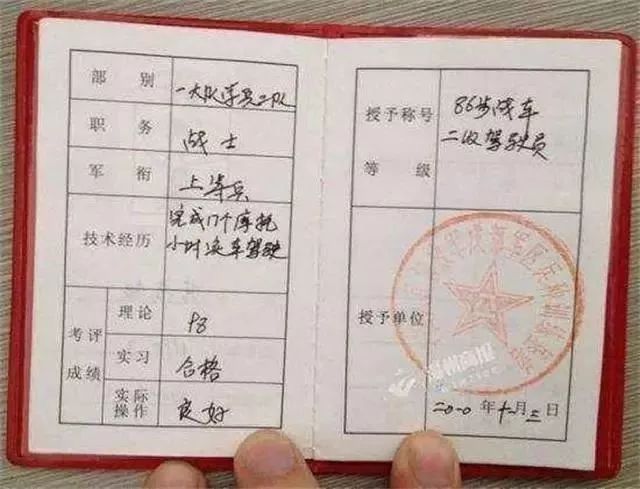 部别
一大队学员二队
职务
战士
军衔
上等兵
技术经历
完成17个摩托
小时乘车驾驶
考评
成绩
理论
98
实习
合格
实际
操作
良好
授予称号
等级
86步战车
二级驾驶员
授予单位
二〇一〇年十一月三日